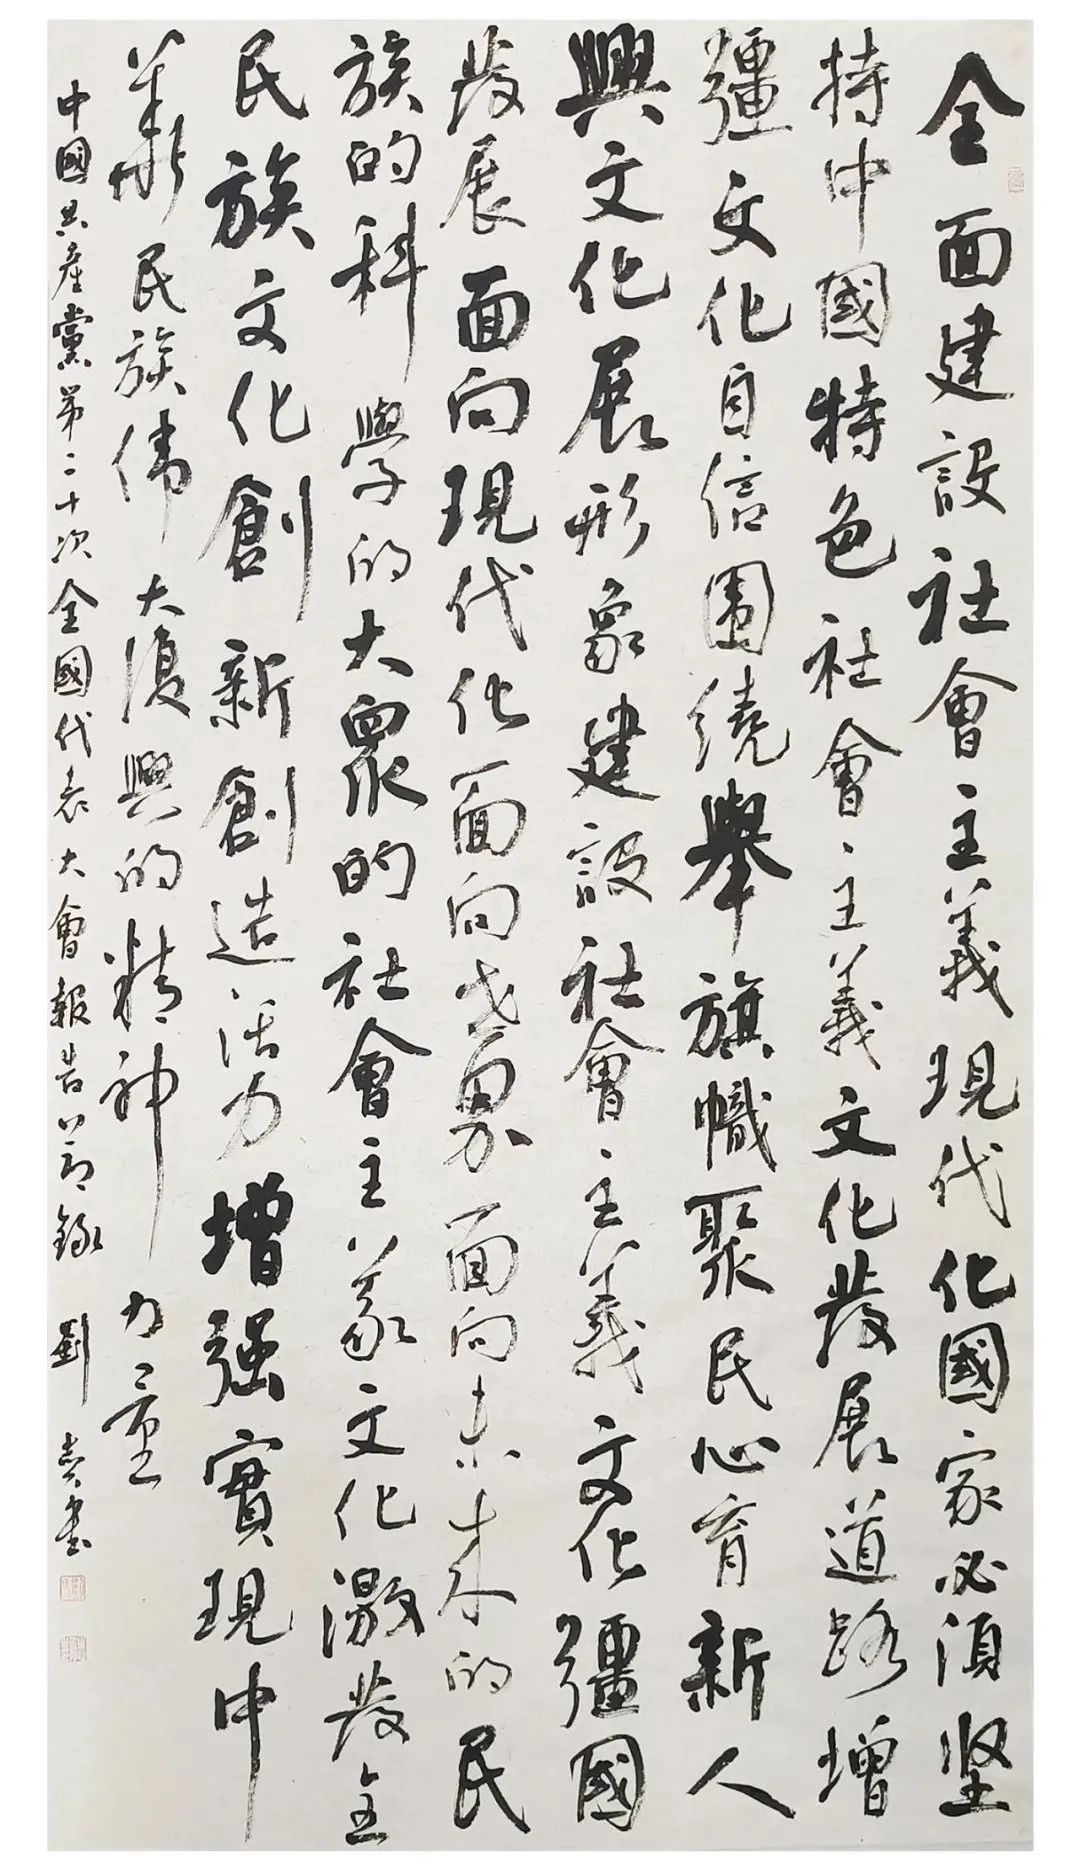 全面建設社會主義現代化國家必須堅
持中國特色社會主義文化發展道路增
彊文化自信圍繞舉旗幟聚民心育新人
興文化展形象建設社會主義文化彊國
發展面向現代化面向世界面向未來的民
族的科學的大眾的社會主義文化激發全
民族文化創新創造活力增强實現中
華民族偉大復興的精神力量
中國共產黨第二十次全國代表大會報告節錄 劉 書